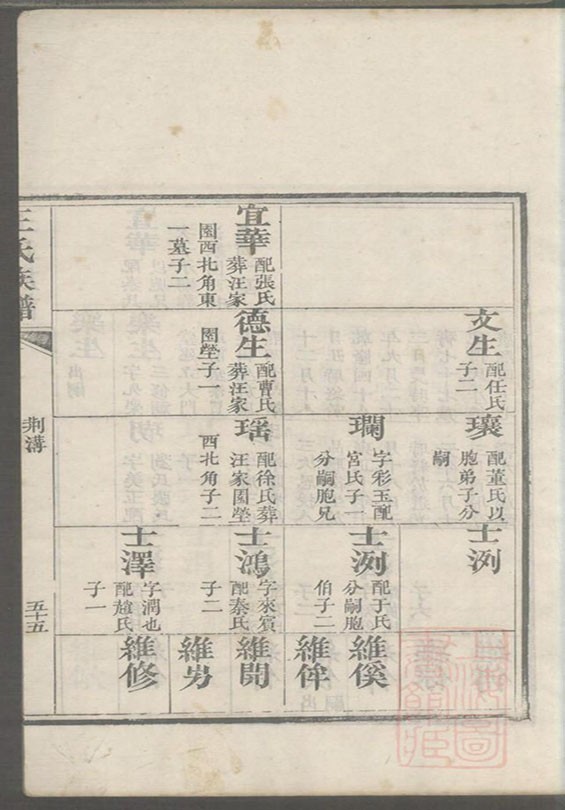 文生
配任氏
子二
瓌
配董氏以
胞弟子分
嗣
士洌
瓓
字彩玉配
宮氏子一
分嗣胞兄
士洌
配于氏
分嗣胞
伯子二
維傒
維伴
宜華
配張氏
葬汪家
園西北角東
一墓子二
德生
配曹氏
葬汪家
園塋子一
瑶
配徐氏葬
汪家園塋
西北角子二
士鴻
字來賓
配秦氏
子二
維開
維男
士澤
字潤也
配趙氏
子一
維修
王氏族譜
荆溝
五十五